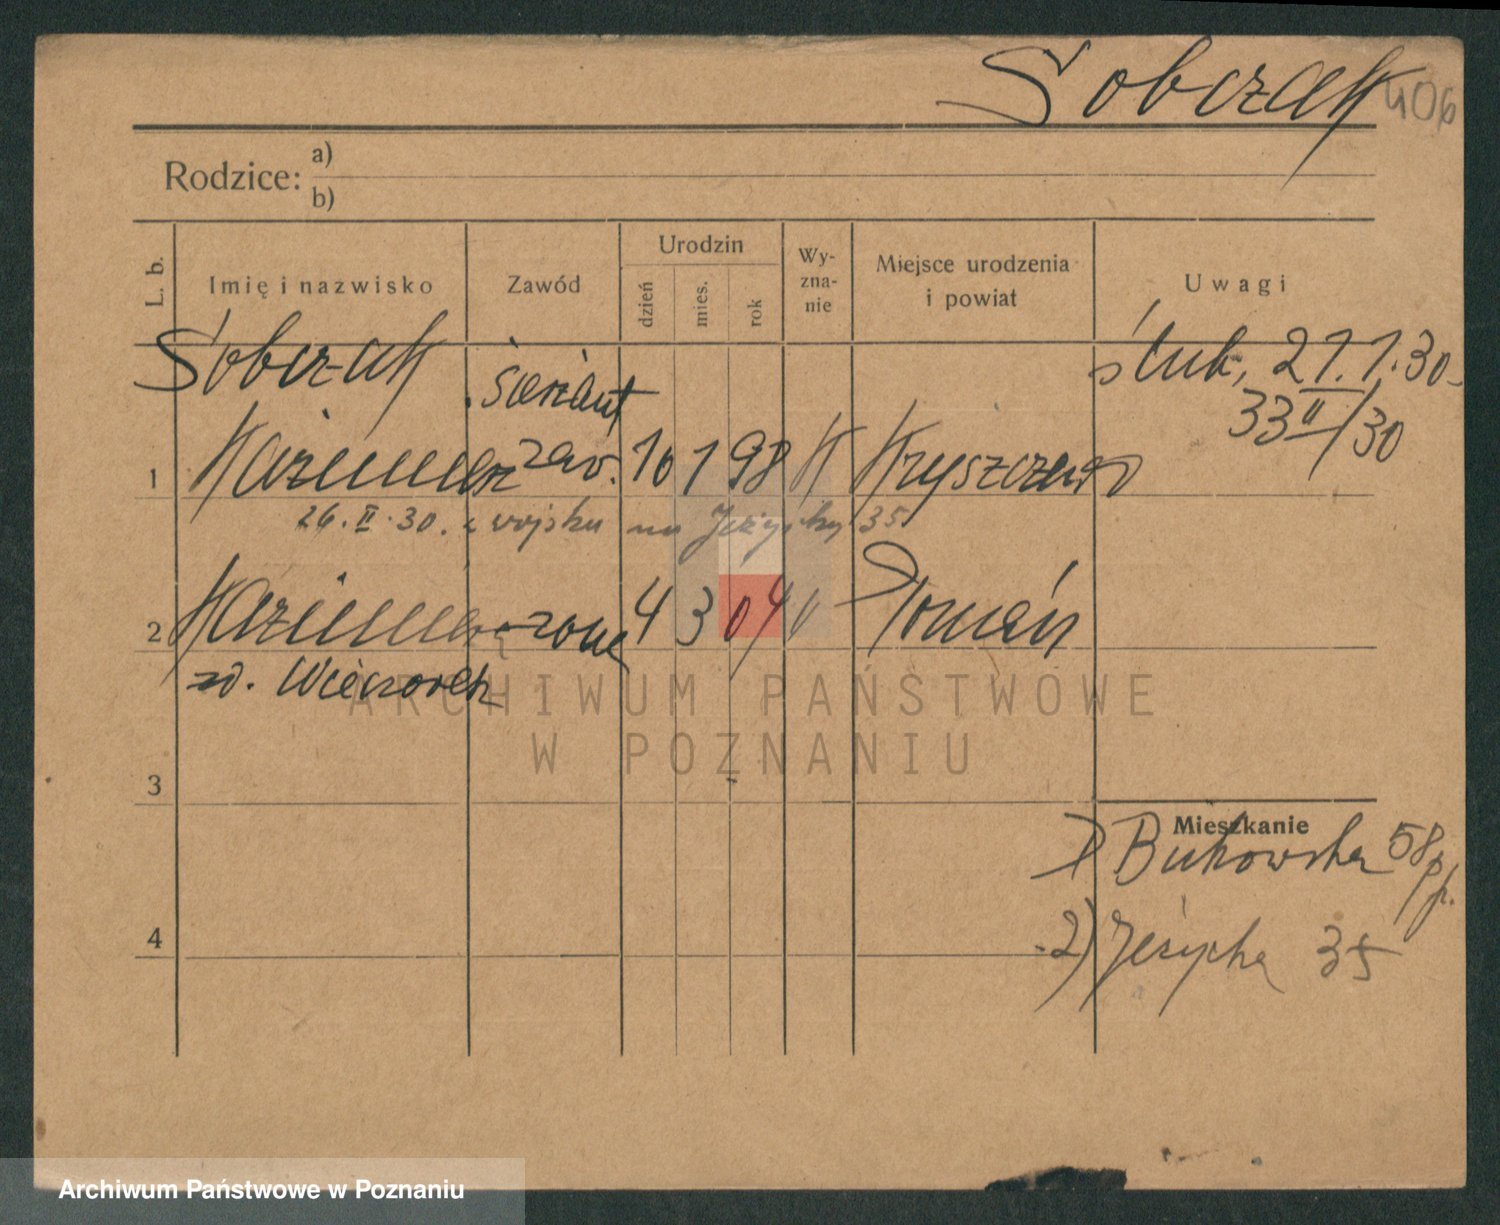 Sobczak 406
Rodzice: a)
b)
L. b.
Imię i nazwisko
Zawód
Urodzin
dzień
mies.
rok
Wy-
zna-
nie
Miejsce urodzenia
i powiat
Uwagi
Sobczak sierżant
ślub, 21.1.30
33 II/30
1 Kazimierz zaw. 16 1 98 K Kryszczewo
26.II.30. z wojska na Jeżycką 35
2 Kazimiera żona 4 3 04 " Poznań
zd. Wieczorek
3
4
Mieszkanie
1) Bukowska 58 pp.
2) Jeżycka 35
ARCHIWUM PAŃSTWOWE
W POZNANIU
Archiwum Państwowe w Poznaniu